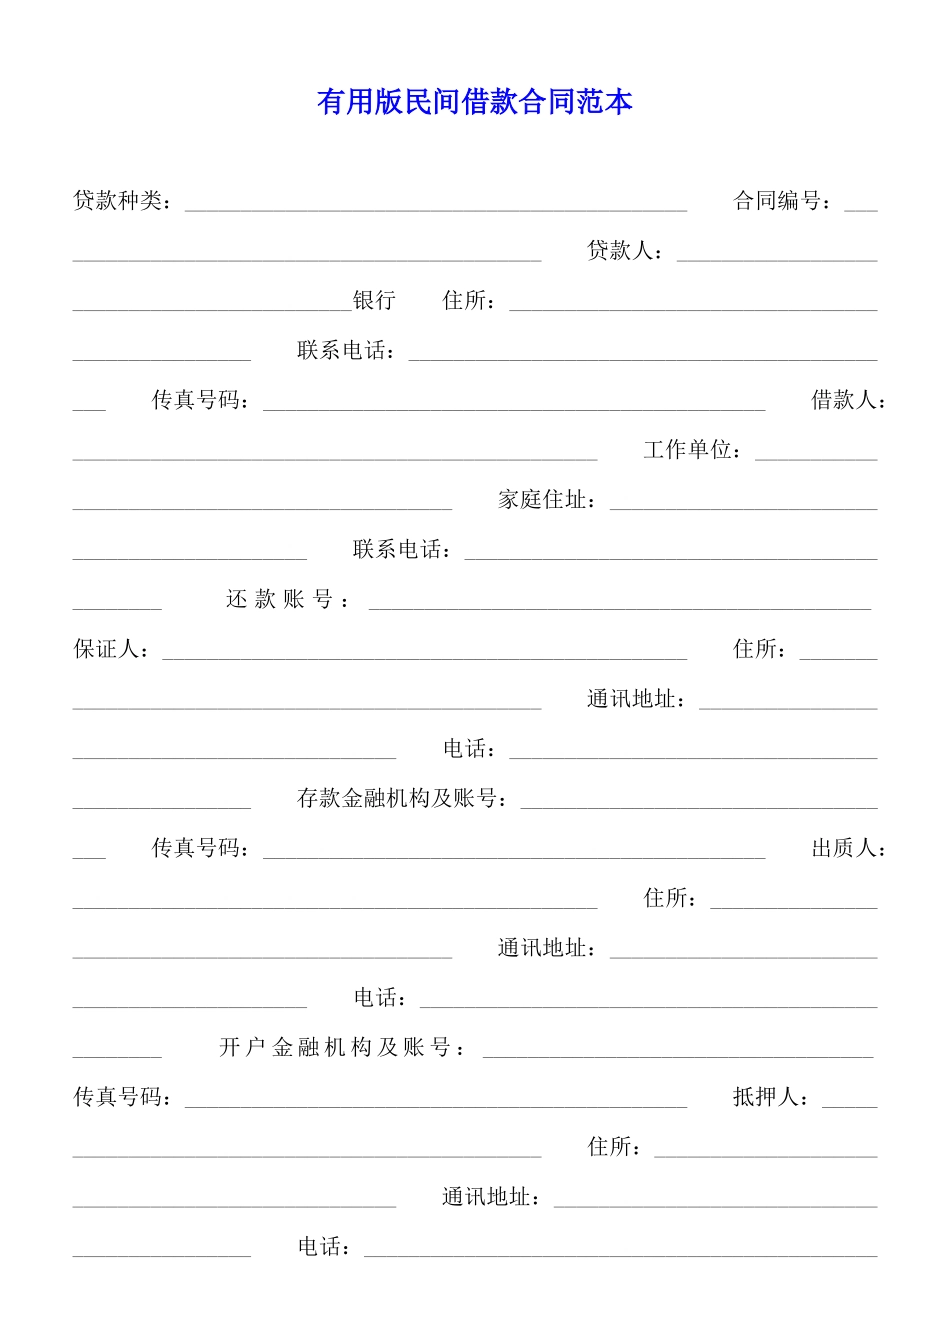 有用版民间借款合同范本
贷款种类：_____________________________________________ 合同编号：___
__________________________________________ 贷款人：__________________
_________________________银行 住所：_________________________________
________________ 联系电话：__________________________________________
___ 传真号码：_____________________________________________ 借款人：
_______________________________________________ 工作单位：___________
__________________________________ 家庭住址：________________________
_____________________ 联系电话：_____________________________________
________ 还款账号：_____________________________________________
保证人：_______________________________________________ 住所：_______
__________________________________________ 通讯地址：________________
_____________________________ 电话：_________________________________
________________ 存款金融机构及账号：________________________________
___ 传真号码：_____________________________________________ 出质人：
_______________________________________________ 住所：_______________
__________________________________ 通讯地址：________________________
_____________________ 电话：_________________________________________
________ 开户金融机构及账号：___________________________________
传真号码：_____________________________________________ 抵押人：_____
__________________________________________ 住所：____________________
_____________________________ 通讯地址：_____________________________
________________ 电话：______________________________________________